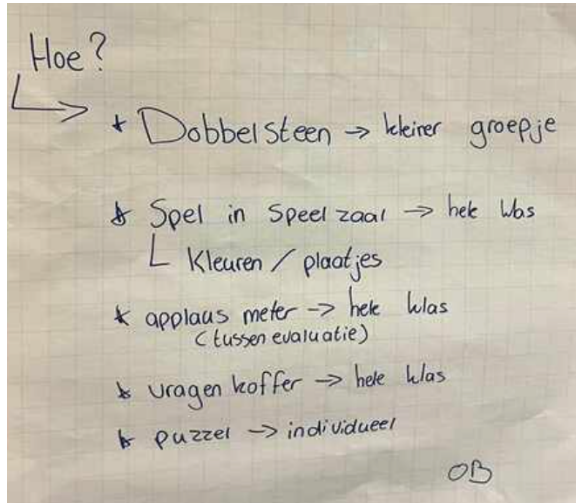 Hoe?
* Dobbelsteen → kleiner groepje
* Spel in Speelzaal → hele klas
Kleuren / plaatjes
* applaus meter → hele klas
(tussen evaluatie)
* vragen koffer → hele klas
* puzzel → individueel
OB